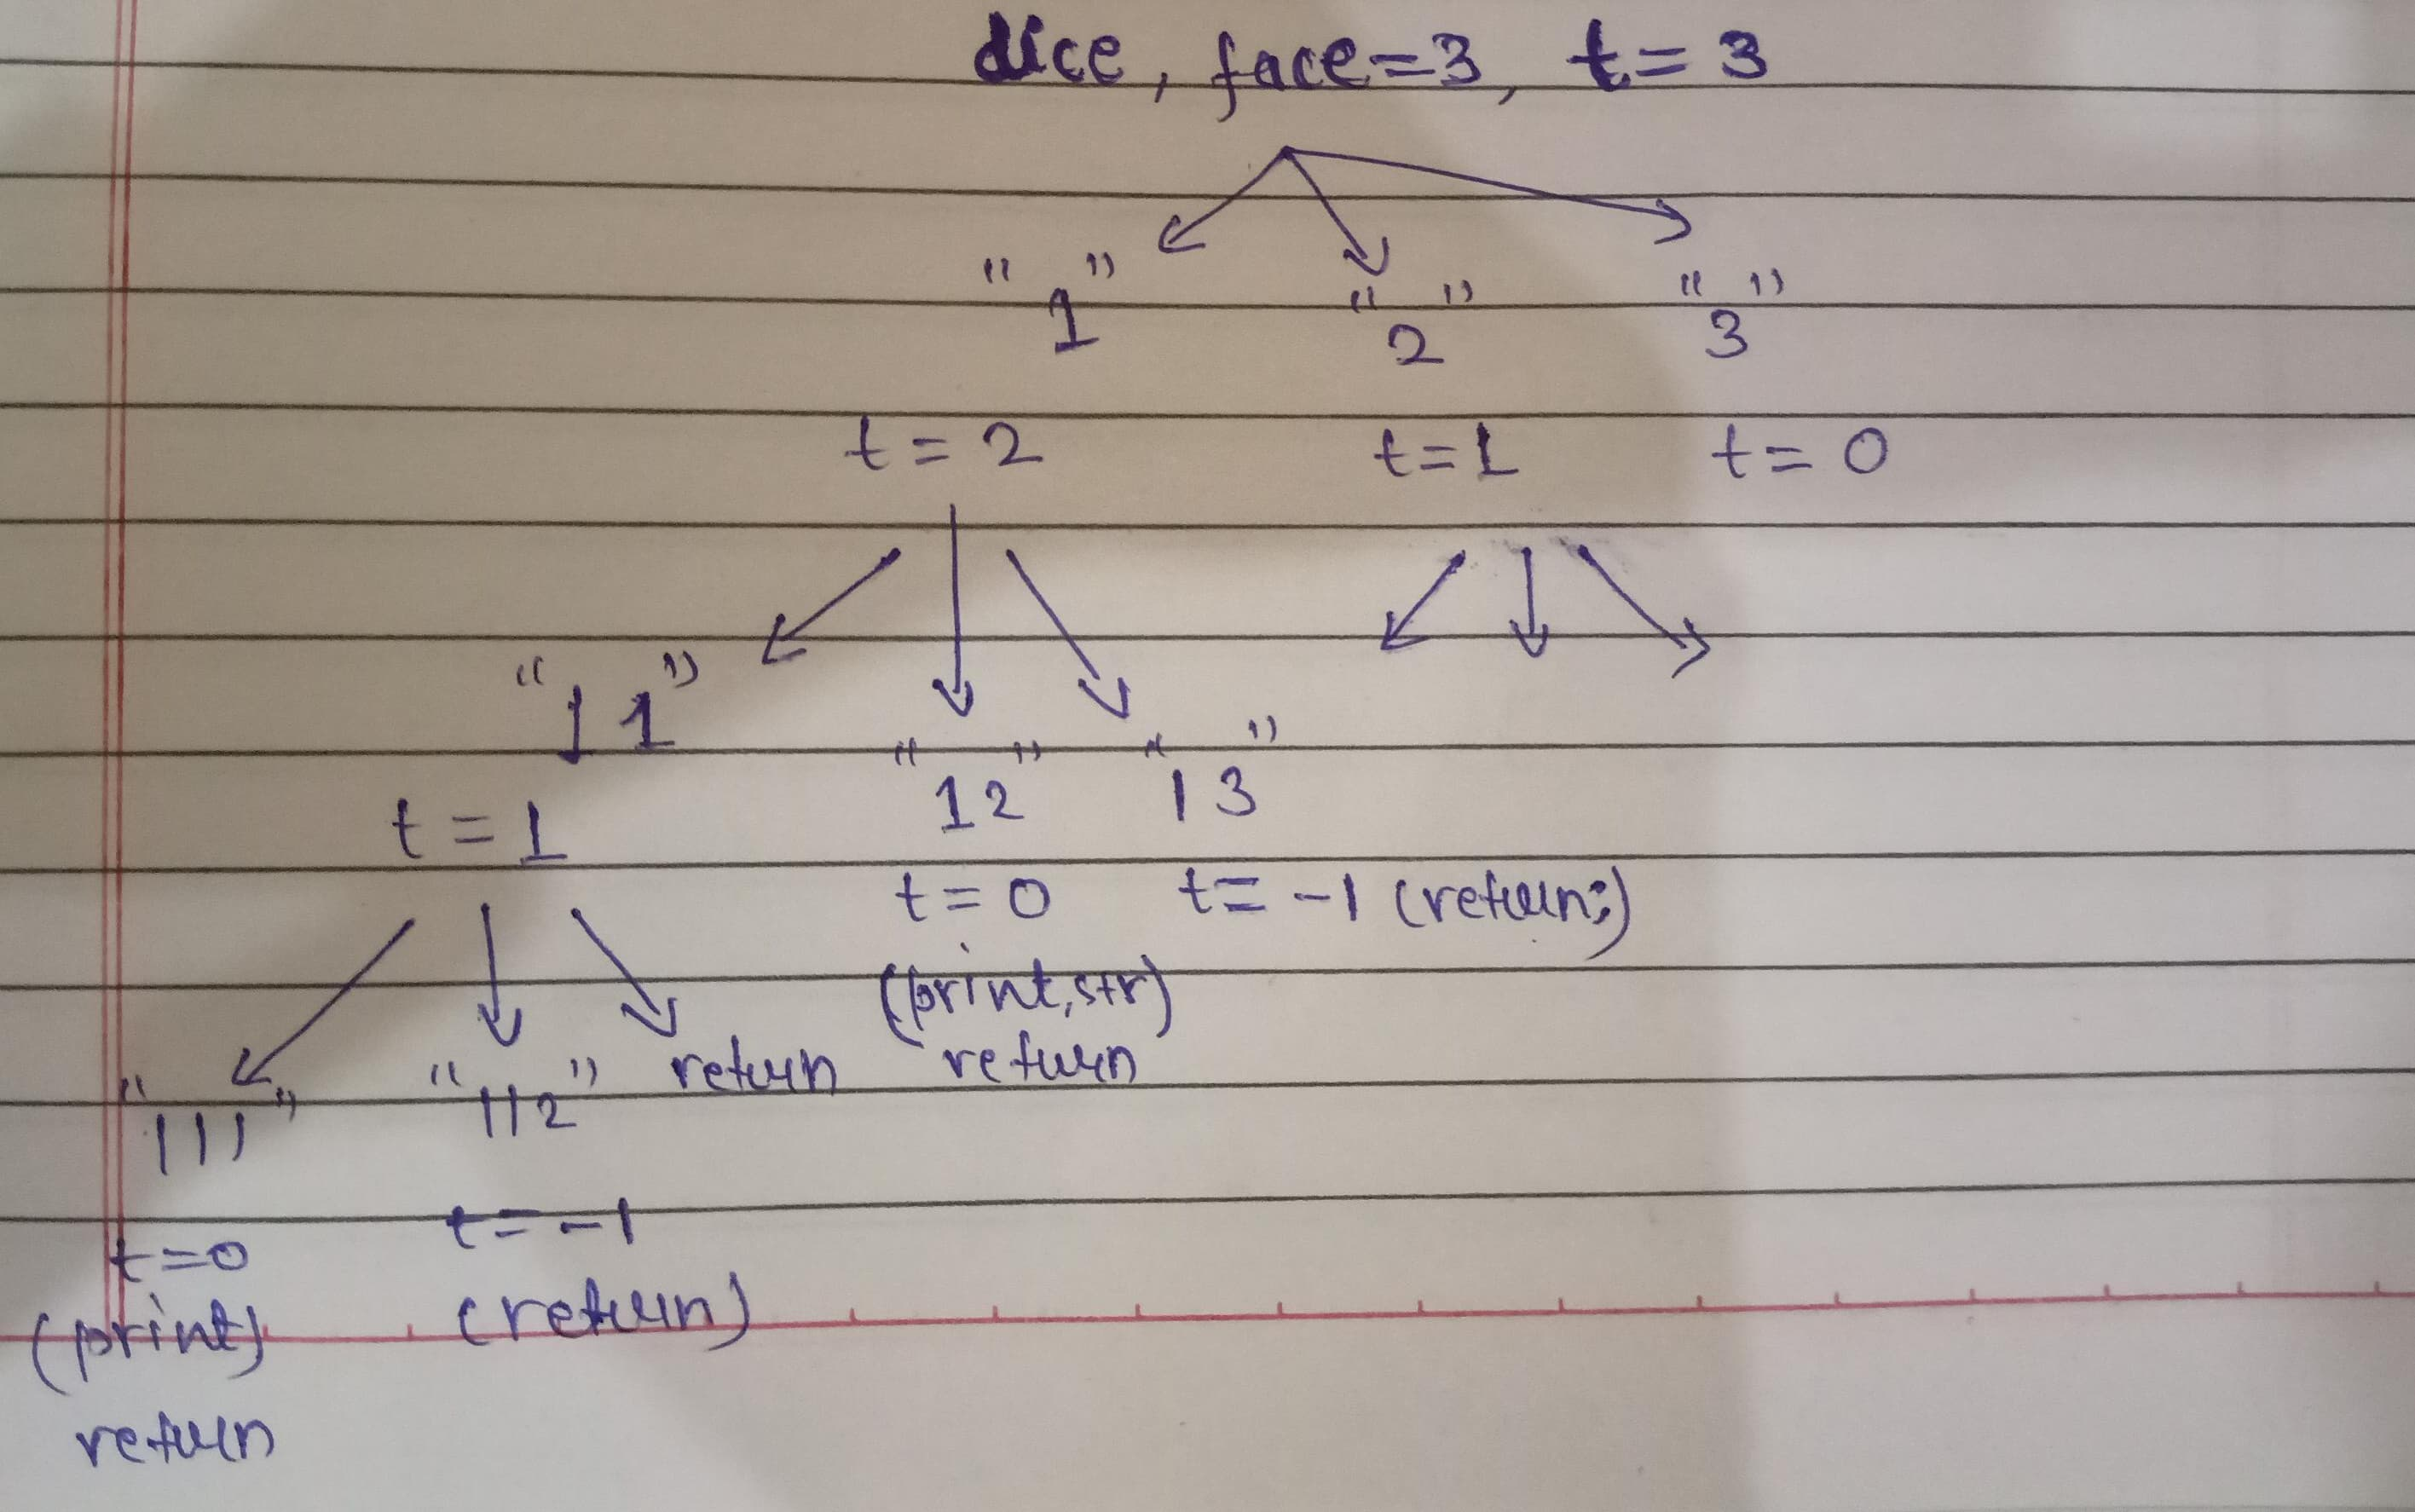 dice, face=3, t=3
"1" "2" "3"
t=2 t=1 t=0
"11" "12" "13"
t=1 t=0 t=-1 (return;)
(print, str)
return return
"111" "112"
t=0 t=-1
(print) (return)
return